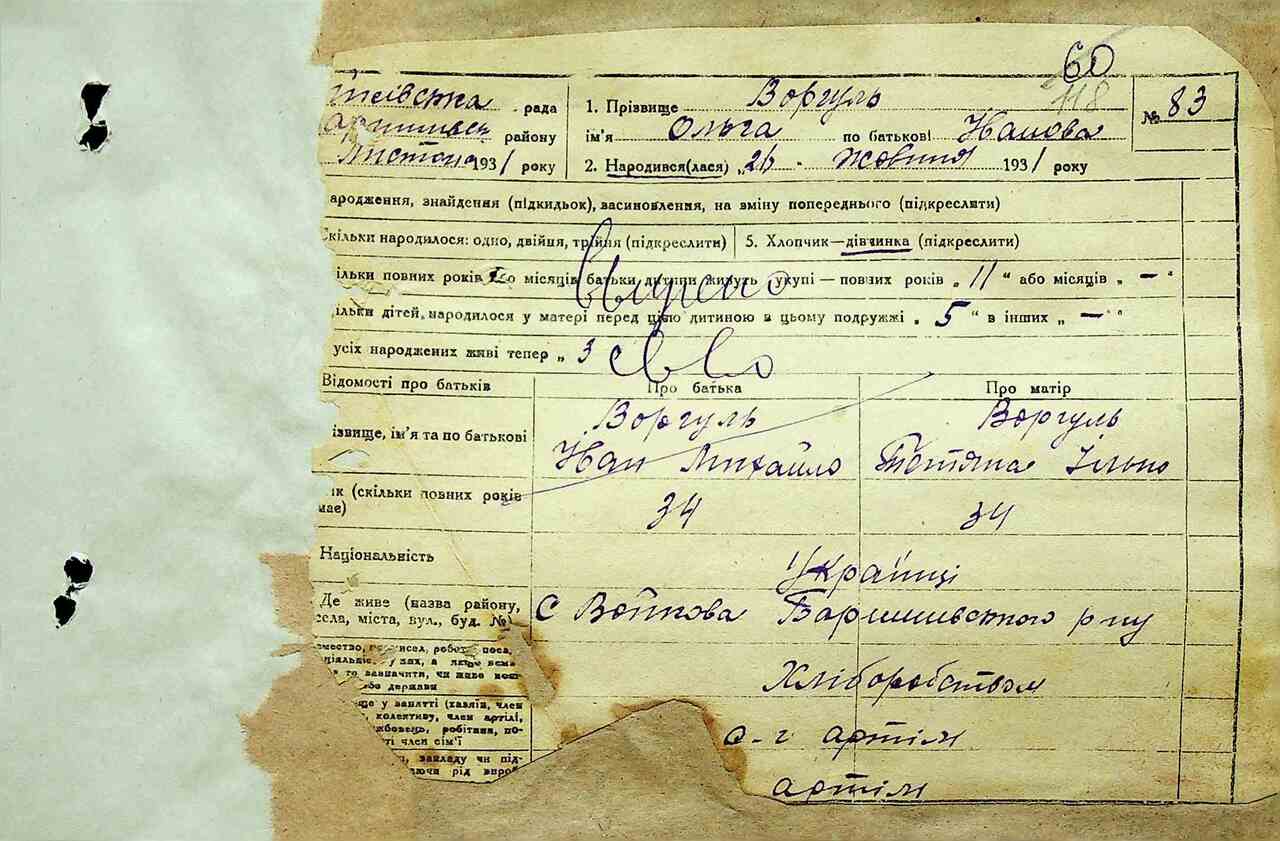 60
118
рада 1. Прізвище Воргуль № 83
району ім'я Ольга по батькові Іванова
193 1 року 2. Народився(лася) „26 " жовтня 193 1 року
ародження, знайдення (підкидьок), васиновлення, на зміну попереднього (підкреслити)
кільки народилося: одно, двійня, трійня (підкреслити) 5. Хлопчик—дівчинка (підкреслити)
ільки повних років або місяців батьки дитини живуть укупі — повних років „ 11 " або місяців „ — "
ільки дітей народилося у матері перед цією дитиною в цьому подружжі „ 5 " в інших „ — "
усіх народжених живі тепер „ 3
Відомості про батьків Про батька Про матір
Воргуль Воргуль
ізвище, ім'я та по батькові Іван Михайло Тетяна Ільно
ік (скільки повних років має) 34 34
Національність Українці
Де живе (назва району, села, міста, вул., буд. №) С Войкова Баришивського р ну
Хліборобством
с-г артіли
ще у занятті (хазяїн, член
колективу, член артілі,
жбовець, робітник, по-
ті член сім'ї
закладу чи під-
артіли